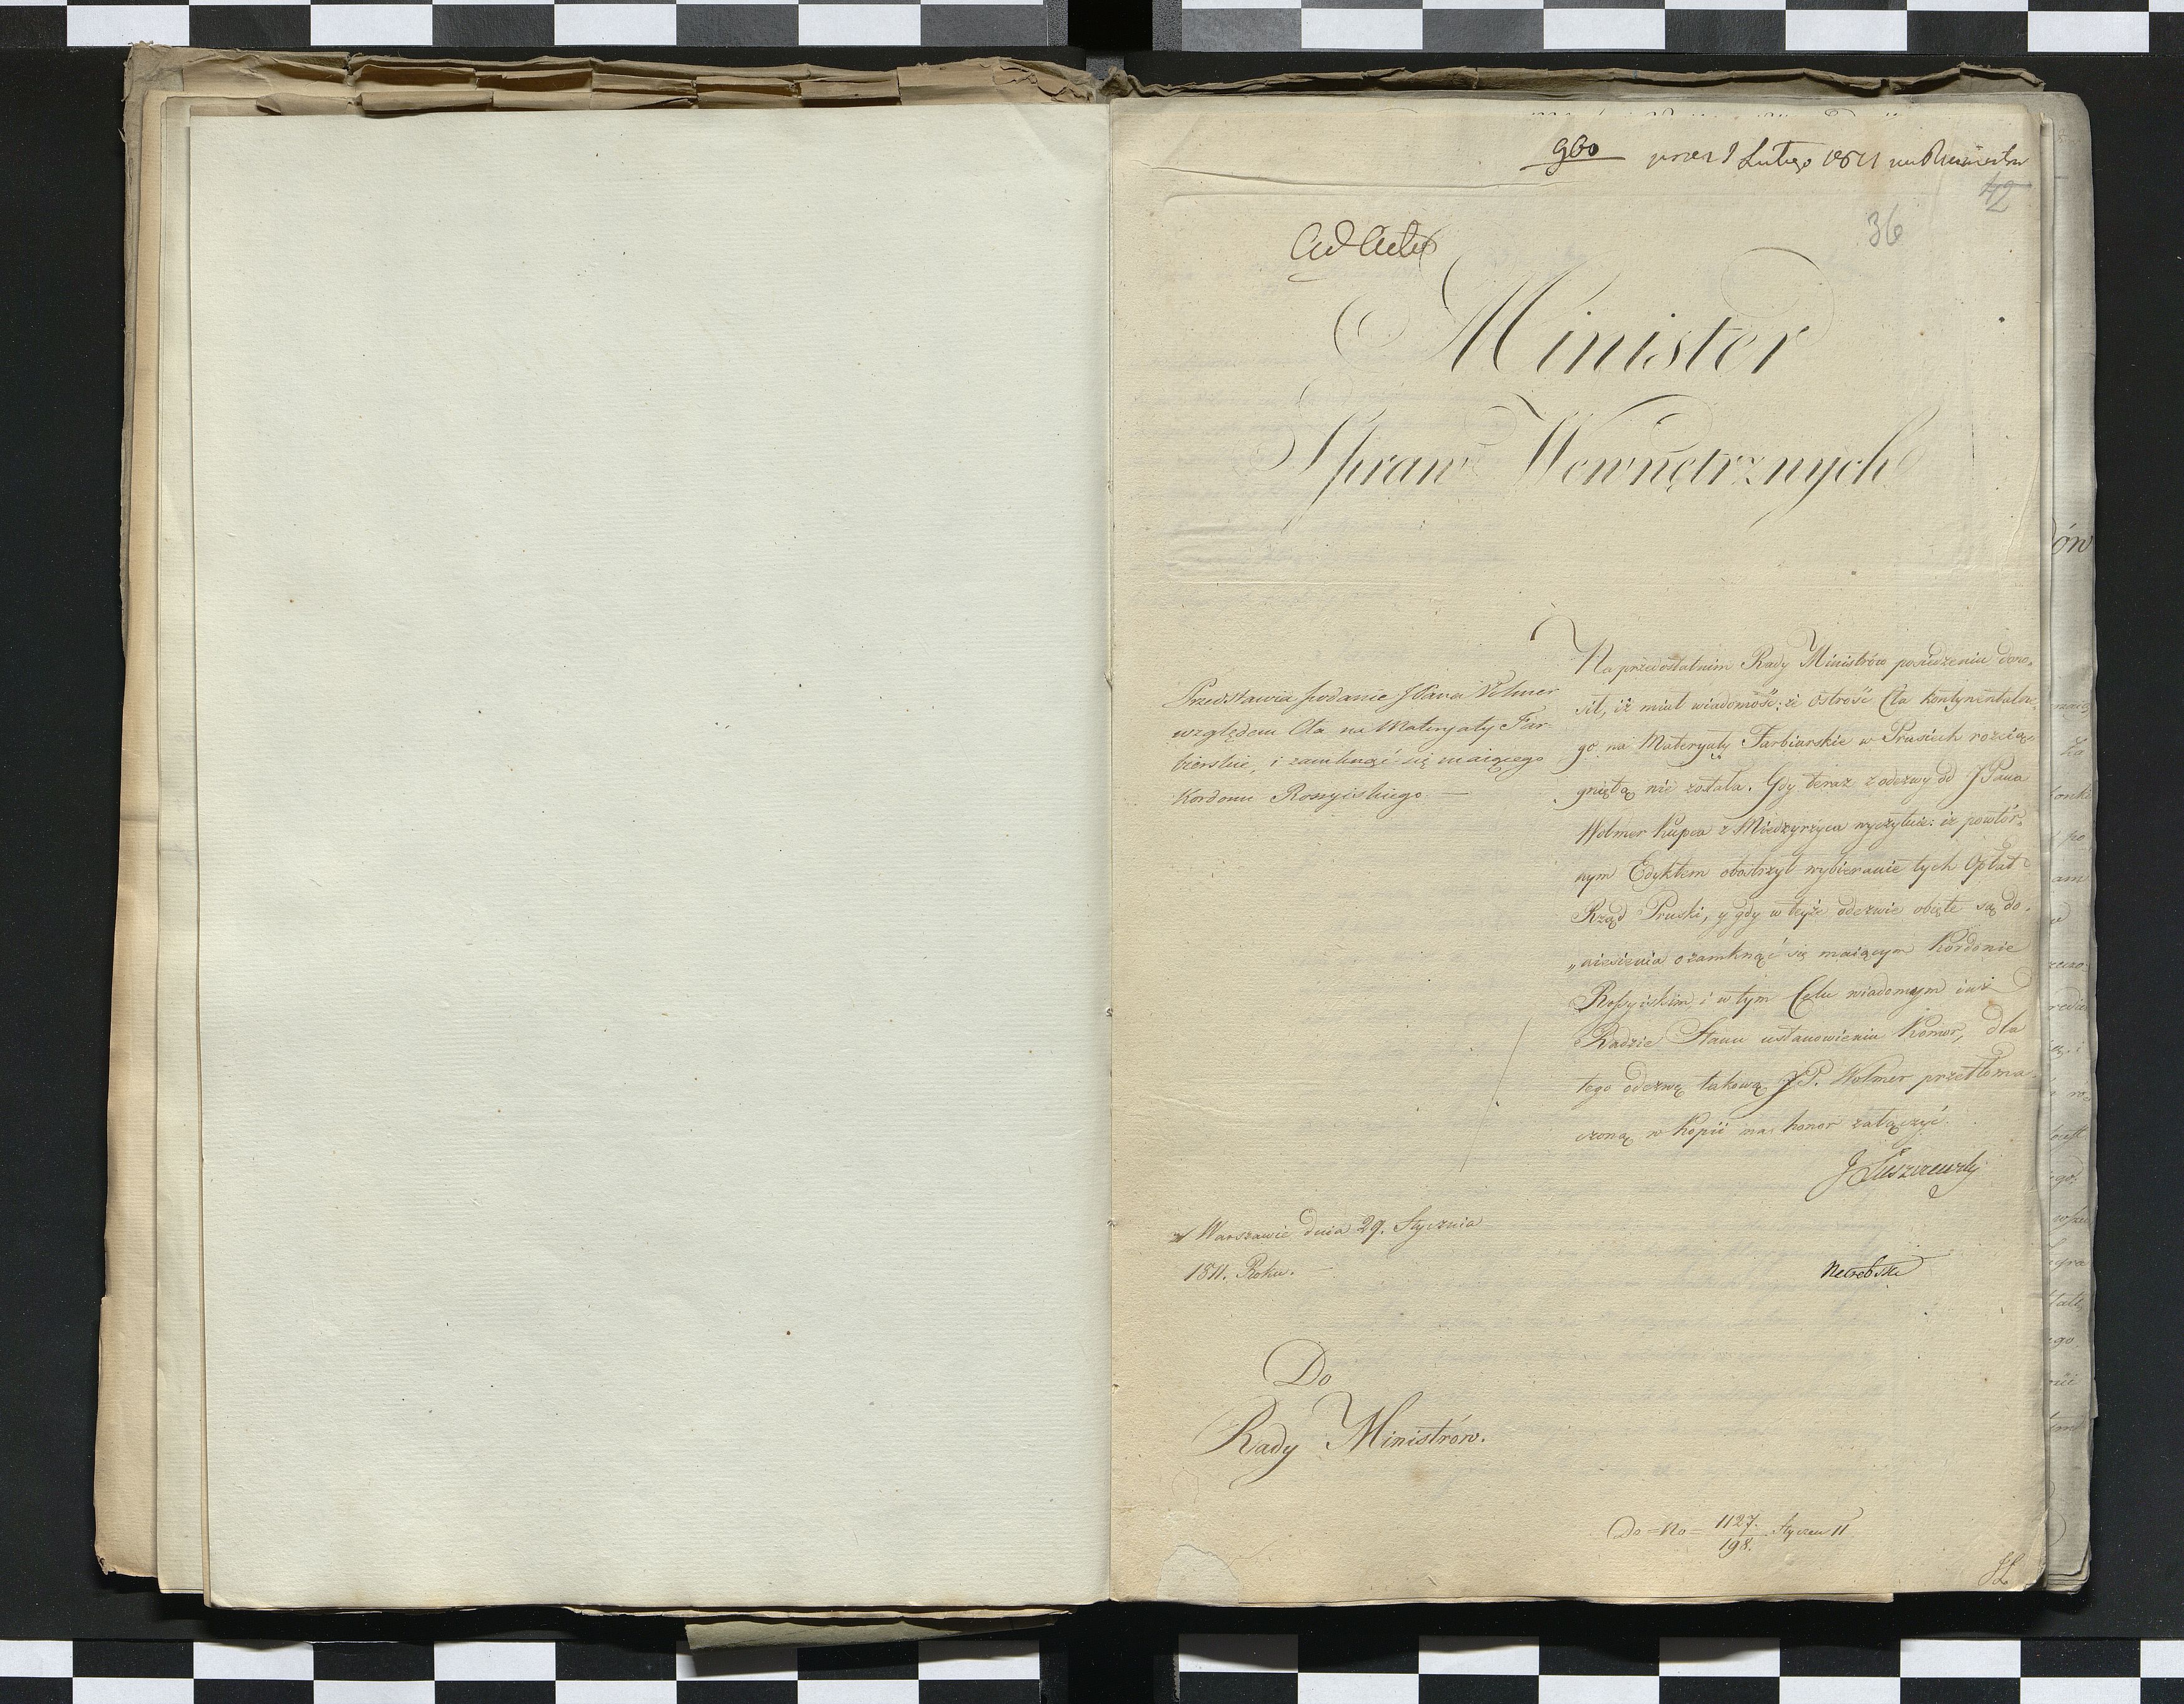 960 Lutego 1811
42
36
Ad Acta
Minister
Spraw Wewnętrznych
Przedstawia podanie JPana Volmer
względem Cła na Materyały Far-
bierskie, i zamknąć się maiącego
Kordonu Rossyiskiego —
Na przedostatnim Rady Ministrów posiedzeniu dono,
sił, iż miał wiadomość: że ostrość Cła kontynentalne,
go na Materyały Farbiarskie w Prusiech rozcią,
gniętą nie została. Gdy teraz z odezwy do JPana
Wolmer Kupca z Międzyrzyca wyczytuie: iż powtór,
nym Edyktem obostrzył wybieranie tych Opłat
Rząd Pruski, y gdy w teyże odezwie obięte są do,
„niesienia o zamknąć się maiącym Kordonie
Rossyiskim i w tym Celu wiadomym iuż
Radzie Stanu ustanowieniu Komor, dla
tego odezwę takową JP. Wolmer przetłoma
czoną w Kopii ma honor załączyć.
J Łuszczewski
w Warszawie dnia 29. Stycznia
1811. Roku. —
Do
Rady Ministrów.
Do No 1127. Styczeń 11
198.